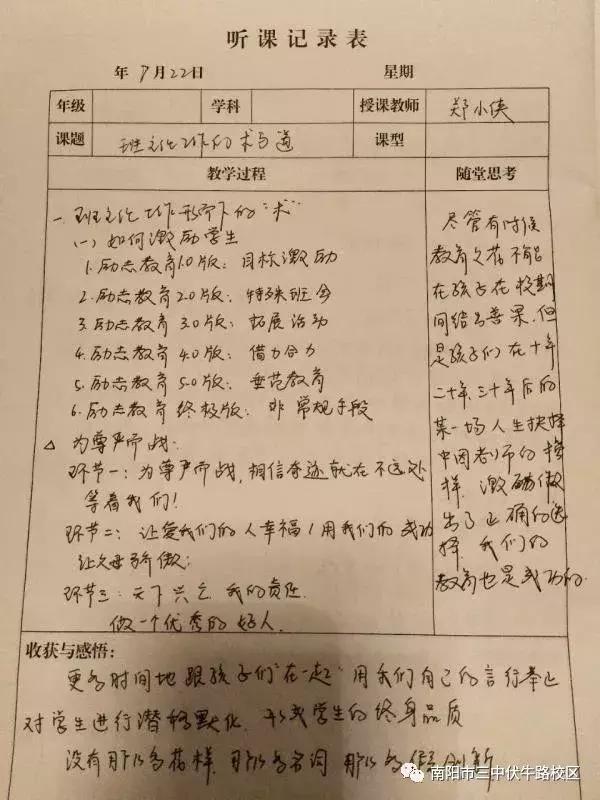 听课记录表
年 9月22日 星期
年级 学科 授课教师 郑小侠
课题 班主任工作的术与道 课型
教学过程 随堂思考
一、班主任工作形而下的“术”
(一)如何激励学生
1.励志教育1.0版:目标激励
2.励志教育2.0版:特殊班会
3.励志教育3.0版:拓展活动
4.励志教育4.0版:借力合力
5.励志教育5.0版:垂范教育
6.励志教育终极版:非常规手段
△ 为尊严而战:
环节一:为尊严而战,相信奇迹就在不远处
等着我们!
环节二:让爱我们的人幸福/用我们的成功
让父母骄傲:
环节三:天下兴亡 我的责任.
做一个优秀的好人.
尽管有时候
教育之花不能
在孩子在校期
间结出善果.但
是孩子们在十年
二十年、三十年后的
某一场人生抉择
中因老师的榜
样、激励做
出了正确的选
择.我们的
教育也是成功的.
收获与感悟:
更多时间地跟孩子们“在一起”用我们自己的言行举止
对学生进行潜移默化.形成学生的终身品质
没有那么多花样.那么多名词 那么多 创新
南阳市三中伏牛路校区